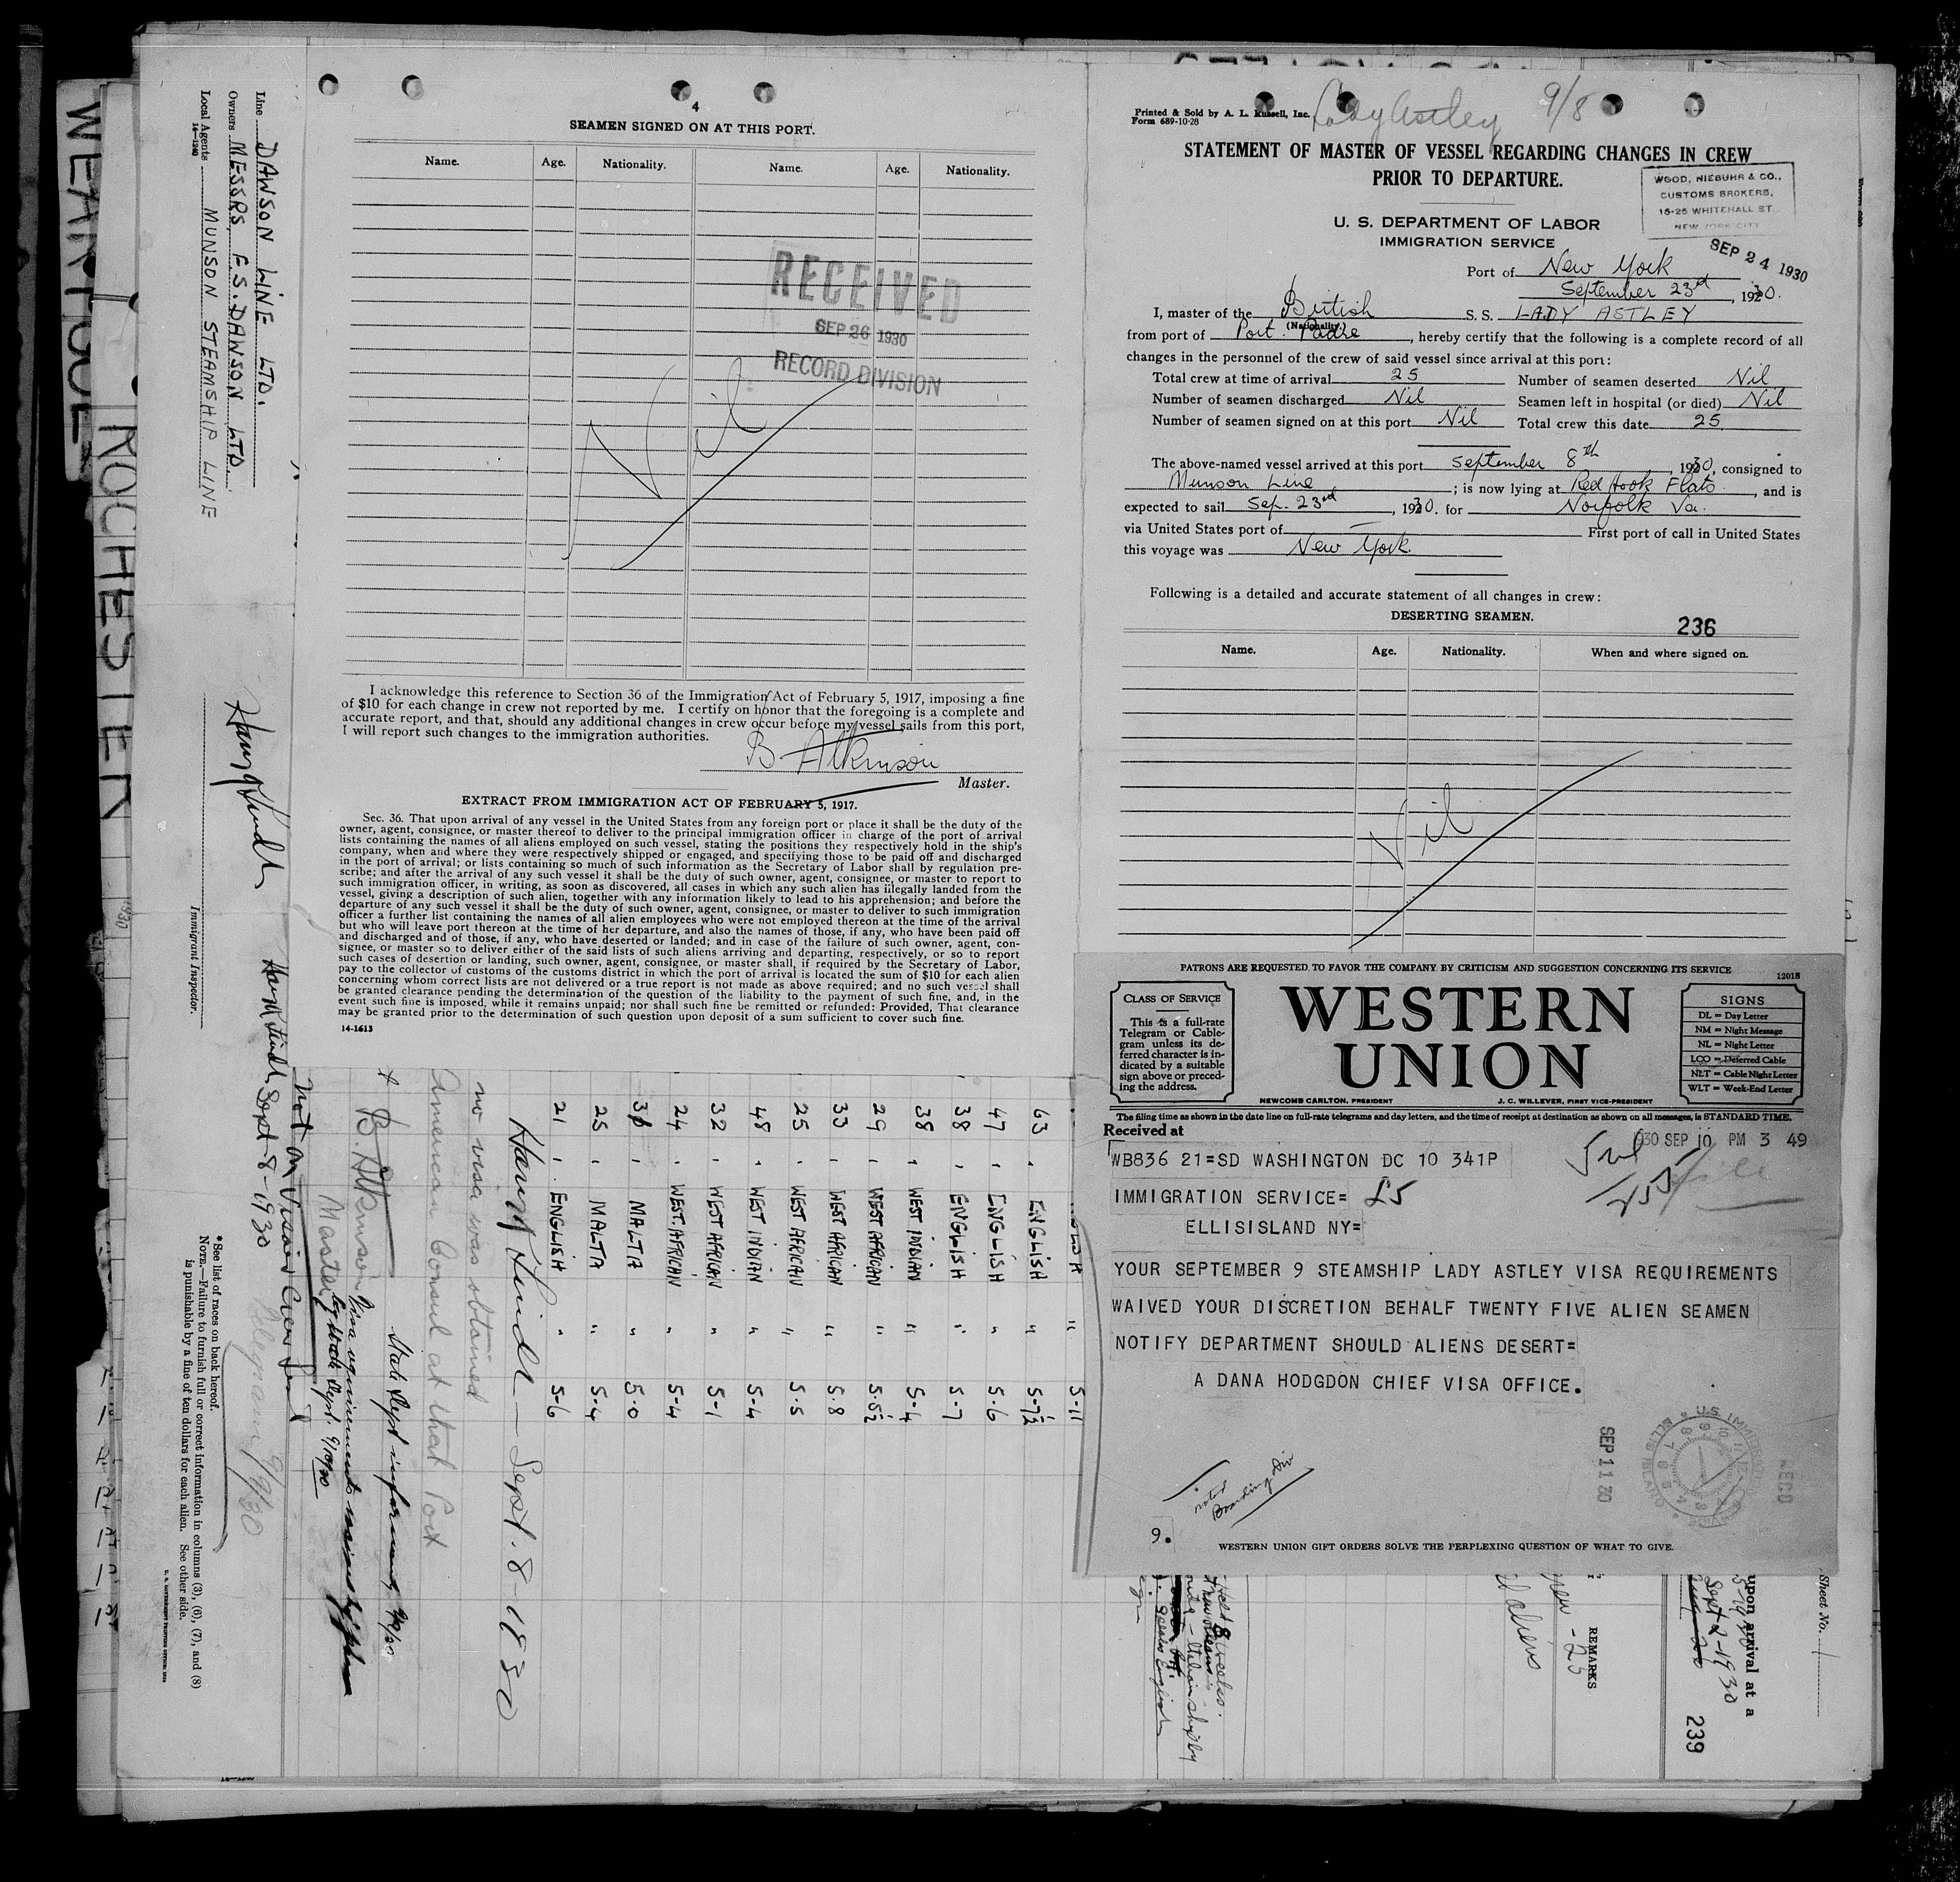 4
SEAMEN SIGNED ON AT THIS PORT.
Name. Age. Nationality. Name. Age. Nationality.
RECEIVED
SEP 26 1930
RECORD DIVISION
Nil
I acknowledge this reference to Section 36 of the Immigration Act of February 5, 1917, imposing a fine
of $10 for each change in crew not reported by me. I certify on honor that the foregoing is a complete and
accurate report, and that, should any additional changes in crew occur before my vessel sails from this port,
I will report such changes to the immigration authorities.
B Atkinson
Master.
EXTRACT FROM IMMIGRATION ACT OF FEBRUARY 5, 1917.
Sec. 36. That upon arrival of any vessel in the United States from any foreign port or place it shall be the duty of the
owner, agent, consignee, or master thereof to deliver to the principal immigration officer in charge of the port of arrival
lists containing the names of all aliens employed on such vessel, stating the positions they respectively hold in the ship's
company, when and where they were respectively shipped or engaged, and specifying those to be paid off and discharged
in the port of arrival; or lists containing so much of such information as the Secretary of Labor shall by regulation pre-
scribe; and after the arrival of any such vessel it shall be the duty of such owner, agent, consignee, or master to report to
such immigration officer, in writing, as soon as discovered, all cases in which any such alien has illegally landed from the
vessel, giving a description of such alien, together with any information likely to lead to his apprehension; and before the
departure of any such vessel it shall be the duty of such owner, agent, consignee, or master to deliver to such immigration
officer a further list containing the names of all alien employees who were not employed thereon at the time of the arrival
but who will leave port thereon at the time of her departure, and also the names of those, if any, who have been paid off
and discharged and of those, if any, who have deserted or landed; and in case of the failure of such owner, agent, con-
signee, or master so to deliver either of the said lists of such aliens arriving and departing, respectively, or so to report
such cases of desertion or landing, such owner, agent, consignee, or master shall, if required by the Secretary of Labor,
pay to the collector of customs of the customs district in which the port of arrival is located the sum of $10 for each alien
concerning whom correct lists are not delivered or a true report is not made as above required; and no such vessel shall
be granted clearance pending the determination of the question of the liability to the payment of such fine, and, in the
event such fine is imposed, while it remains unpaid; nor shall such fine be remitted or refunded: Provided, That clearance
may be granted prior to the determination of such question upon deposit of a sum sufficient to cover such fine.
14-1613
Printed & Sold by A. L. Russell, Inc.
Form 689-10-28
Lady Astley 9/8
STATEMENT OF MASTER OF VESSEL REGARDING CHANGES IN CREW
PRIOR TO DEPARTURE.
WOOD, NIEBUHR & CO.,
CUSTOMS BROKERS,
15-25 WHITEHALL ST.
NEW YORK CITY
U. S. DEPARTMENT OF LABOR
IMMIGRATION SERVICE
SEP 24 1930
Port of New York
September 23rd, 1930.
I, master of the British S. S. LADY ASTLEY
(Nationality.)
from port of Port Padre, hereby certify that the following is a complete record of all
changes in the personnel of the crew of said vessel since arrival at this port:
Total crew at time of arrival 25 Number of seamen deserted Nil
Number of seamen discharged Nil Seamen left in hospital (or died) Nil
Number of seamen signed on at this port Nil Total crew this date 25
The above-named vessel arrived at this port September 8th, 1930, consigned to
Munson Line; is now lying at Red Hook Flats, and is
expected to sail Sep. 23rd, 1930. for Norfolk Va.
via United States port of — First port of call in United States
this voyage was New York.
Following is a detailed and accurate statement of all changes in crew:
DESERTING SEAMEN.
236
Name. Age. Nationality. When and where signed on.
Nil
PATRONS ARE REQUESTED TO FAVOR THE COMPANY BY CRITICISM AND SUGGESTION CONCERNING ITS SERVICE
1201S
CLASS OF SERVICE
This is a full-rate
Telegram or Cable-
gram unless its de-
ferred character is in-
dicated by a suitable
sign above or preced-
ing the address.
WESTERN
UNION
NEWCOMB CARLTON, PRESIDENT J. C. WILLEVER, FIRST VICE-PRESIDENT
SIGNS
DL = Day Letter
NM = Night Message
NL = Night Letter
LCO = Deferred Cable
NLT = Cable Night Letter
WLT = Week-End Letter
The filing time as shown in the date line on full-rate telegrams and day letters, and the time of receipt at destination as shown on all messages, is STANDARD TIME.
Received at
1930 SEP 10 PM 3 49
WB836 21=SD WASHINGTON DC 10 341P
IMMIGRATION SERVICE=
ELLISISLAND NY=
YOUR SEPTEMBER 9 STEAMSHIP LADY ASTLEY VISA REQUIREMENTS
WAIVED YOUR DISCRETION BEHALF TWENTY FIVE ALIEN SEAMEN
NOTIFY DEPARTMENT SHOULD ALIENS DESERT=
A DANA HODGDON CHIEF VISA OFFICE.
SEP 11 30
REC'D
noted
Boarding Div
9.
WESTERN UNION GIFT ORDERS SOLVE THE PERPLEXING QUESTION OF WHAT TO GIVE.
Line DAWSON LINE LTD.
Owners MESSRS. F.S. DAWSON LTD.
Local Agents MUNSON STEAMSHIP LINE
14-1240
Immigrant Inspector.
Sept-8-1930
63 ENGLISH " 5-7½
47 ENGLISH " 5-6
38 ENGLISH " 5-7
38 WEST INDIAN " 5-4
29 WEST AFRICAN " 5-5½
33 WEST AFRICAN " 5-8
25 WEST AFRICAN " 5-5
48 WEST INDIAN " 5-4
32 WEST AFRICAN " 5-1
24 WEST AFRICAN " 5-4
31 MALTA " 5-0
25 MALTA " 5-4
21 ENGLISH " 5-6
5-11
Sept. 8-1930
no visa was obtained
American Consul at that Port
B. Atkinson
Master
Telegram 9/9/30
* See list of races on back hereof.
NOTE.—Failure to furnish full or correct information in columns (3), (6), (7), and (8)
is punishable by a fine of ten dollars for each alien. See other side.
Sheet No. 1
upon arrival at a
Sept 2-1930
239
REMARKS
25
aliens
WEARPOOL
ROCHESTER